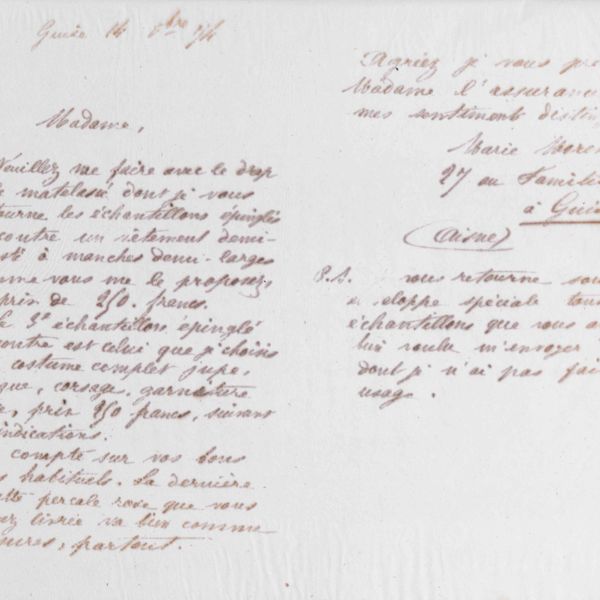 Guise 14 8bre 74
Madame,
Veuillez me faire avec le drap
matelassé dont je vous
tourne les échantillons épinglés
contre un vêtement demi-
sté à manches demi-larges
mme vous me le proposez,
prix de 250 francs.
le 3e échantillons épinglé
contre est celui que je choisis
costume complet jupe,
que, corsage, garniture
prix 250 francs, suivant
indications.
compte sur vos bons
s habituels. La dernière
percale rose que vous
ez livrée va bien comme
partout.
Agréez je vous pr
Madame l'assuranc
mes sentiment disting
Marie More
27 au Famili
à Guis
(Aisne)
P.S. vous retourne sou
eloppe spéciale tous
échantillons que vous a
bien voulu m'envoyer
dont je n'ai pas fai
usage.